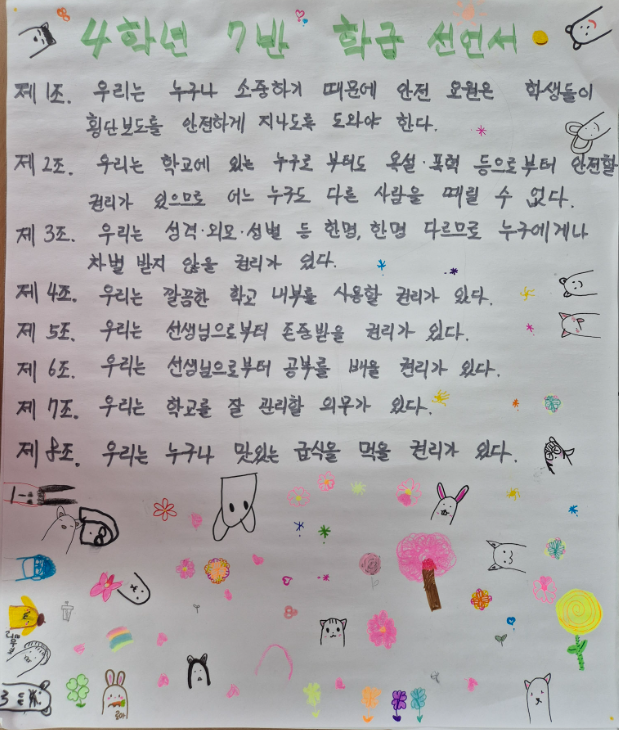 4학년 7반 학급 선언서
제 1조. 우리는 누구나 소중하기 때문에 안전 요원은 학생들이
횡단보도를 안전하게 지나도록 도와야 한다.
제 2조. 우리는 학교에 있는 누구로 부터도 욕설·폭력 등으로부터 안전할
권리가 있으므로 어느 누구도 다른 사람을 때릴 수 없다.
제 3조. 우리는 성격·외모·성별 등 한명, 한명 다르므로 누구에게나
차별 받지 않을 권리가 있다.
제 4조. 우리는 깔끔한 학교 내부를 사용할 권리가 있다.
제 5조. 우리는 선생님으로부터 존중받을 권리가 있다.
제 6조. 우리는 선생님으로부터 공부를 배울 권리가 있다.
제 7조. 우리는 학교를 잘 관리할 의무가 있다.
제 8조. 우리는 누구나 맛있는 급식을 먹을 권리가 있다.